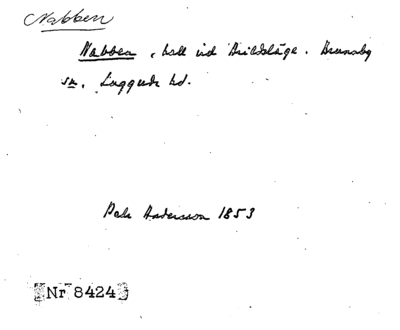 Nabben
Nabben, hall vid Arildsläge. Brunnby
sn. Luggude hd.
Pehr Andersson 1853
Nr 8424